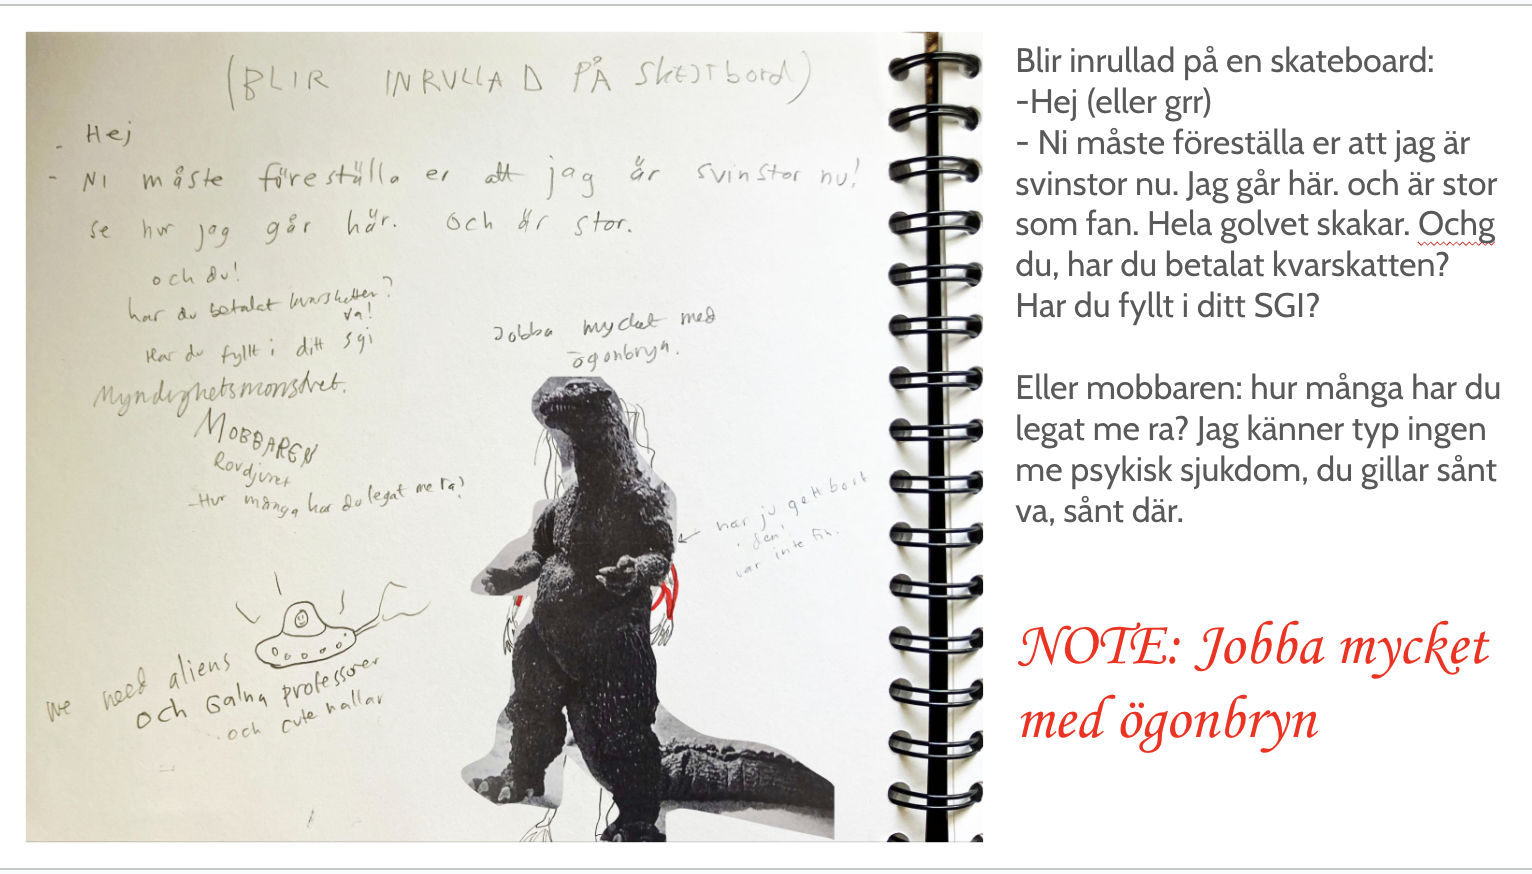 (BLIR INRULLAD PÅ SKEJTBORD)
- Hej
- NI måste föreställa er att jag är svinstor nu!
se hur jag går här. Och är stor.
och du!
har du betalat kvarskatten?
va!
Har du fyllt i ditt sgi
Myndighetsmonstret.
MOBBAREN
Rovdjuret
-Hur många har du legat me ra?
Jobba mycket med
ögonbryn.
har ju gett bort
den!
var inte fin.
we need aliens
och Galna professorer
och cute nallar
Blir inrullad på en skateboard:
-Hej (eller grr)
- Ni måste föreställa er att jag är
svinstor nu. Jag går här. och är stor
som fan. Hela golvet skakar. Ochg
du, har du betalat kvarskatten?
Har du fyllt i ditt SGI?
Eller mobbaren: hur många har du
legat me ra? Jag känner typ ingen
me psykisk sjukdom, du gillar sånt
va, sånt där.
NOTE: Jobba mycket
med ögonbryn